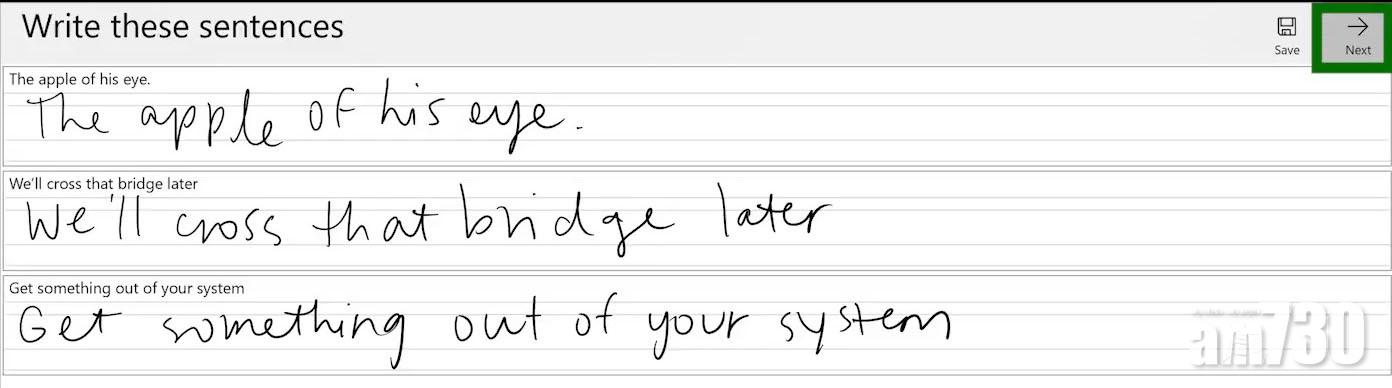 Write these sentences
Save
Next
The apple of his eye.
The apple of his eye.
We'll cross that bridge later
We'll cross that bridge later
Get something out of your system
Get something out of your system
am730